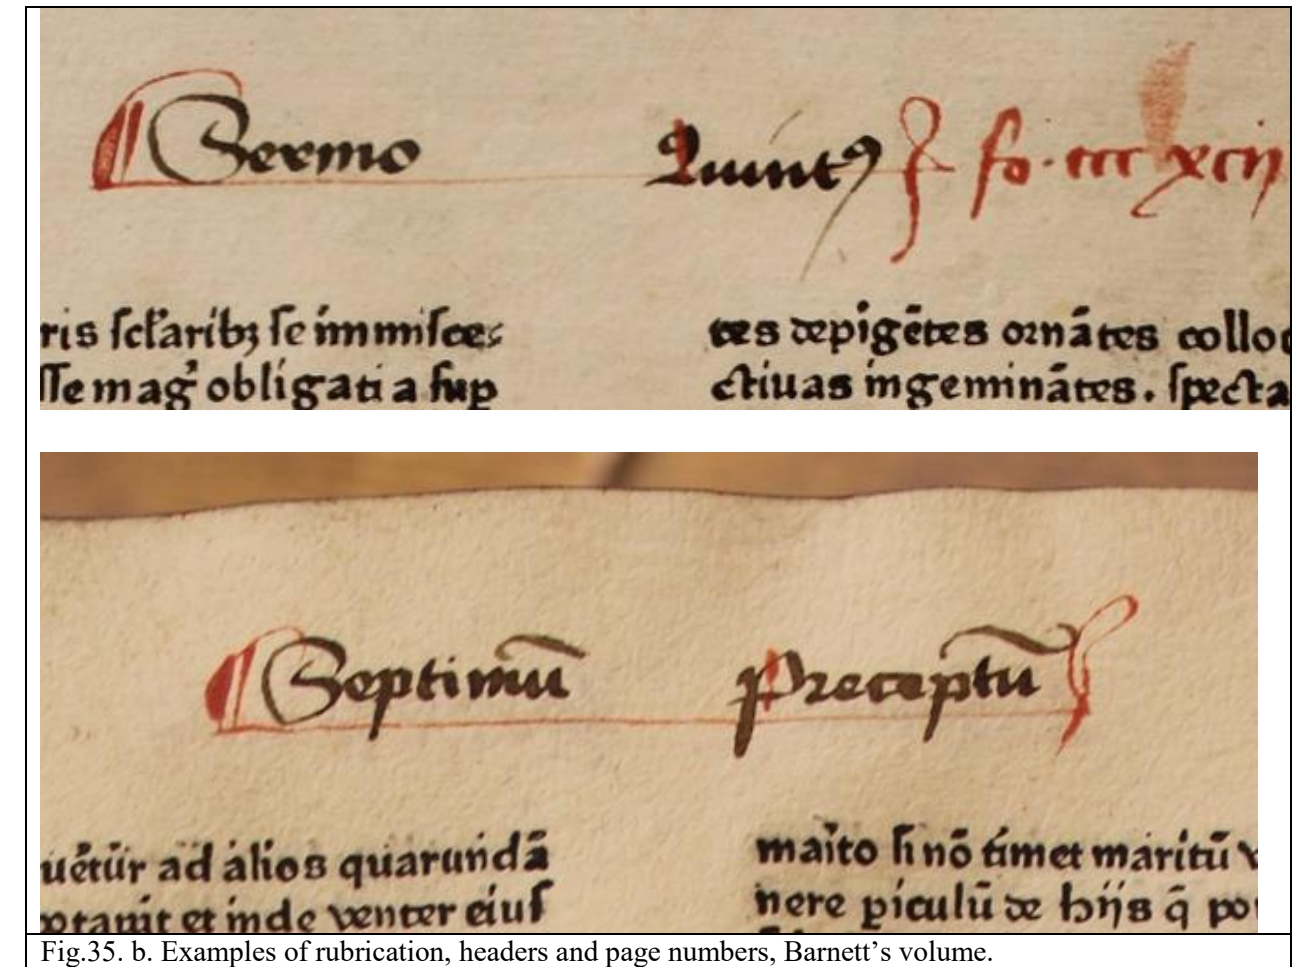 Sermo Quintꝰ fo. ccc xcij
ris sctaribʒ se immisce⸗
sse magꝭ obligati a sup
tes depigētes ornātes colloc
ctiuas ingeminātes. specta
Septimū Preceptū
uētūr ad alios quarundā
ptauit et inde venter eius
maīto si nō timet maritū v
nere piculū de hijs q̄ po
Fig.35. b. Examples of rubrication, headers and page numbers, Barnett’s volume.